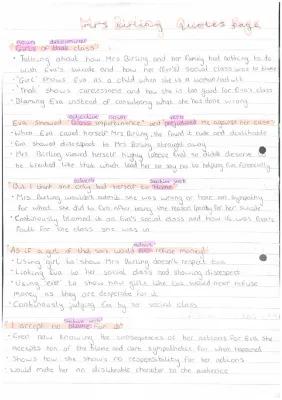 Mrs Birling Quotes page
noun determiner
Girls of that class
• Talking about how Mrs Birling and her family had nothing to do
with Eva's suicide and how her (Eva's) social class was to blame
• 'Girl' shows Eva as a child when she is a woman
• 'That' shows carelessness and how she is too good for Eva's class
• Blaming Eva instead of considering what she has done wrong
adjective noun verb
Eva showed "Gross impertinence" and prejudiced me against her case
• When Eva called herself Mrs Birling, she found it rude and dislikable
• Eva showed disrespect to Mrs Birling straight away
• Mrs Birling viewed herself highly
be treated like that which lead her to say no to helping Eva financially
But I think she only had herself to blame
• Mrs Birling wouldn't admit she was wrong or have any sympathy
for what she did to Eva after being the reason for her suicide
• Continuously blamed it on Eva's social class and how it was Eva's
fault for the class she was in
As if a girl of that sort would ever refuse money!
• Using 'girl' to show Mrs Birling doesn't respect Eva
• Linking Eva to her social class and showing disrespect
• Using 'ever' to show how girls like Eva would never refuse
money as they are desperate for it
• Continuously judging Eva by her social class
I accept no blame for it
• Even now knowing the consequences of her actions for Eva she
accepts non of the blame and isn't sympathetic for what happened
• Shows how she shows no responsibility for her actions
• Would make her an dislikable character to the audience